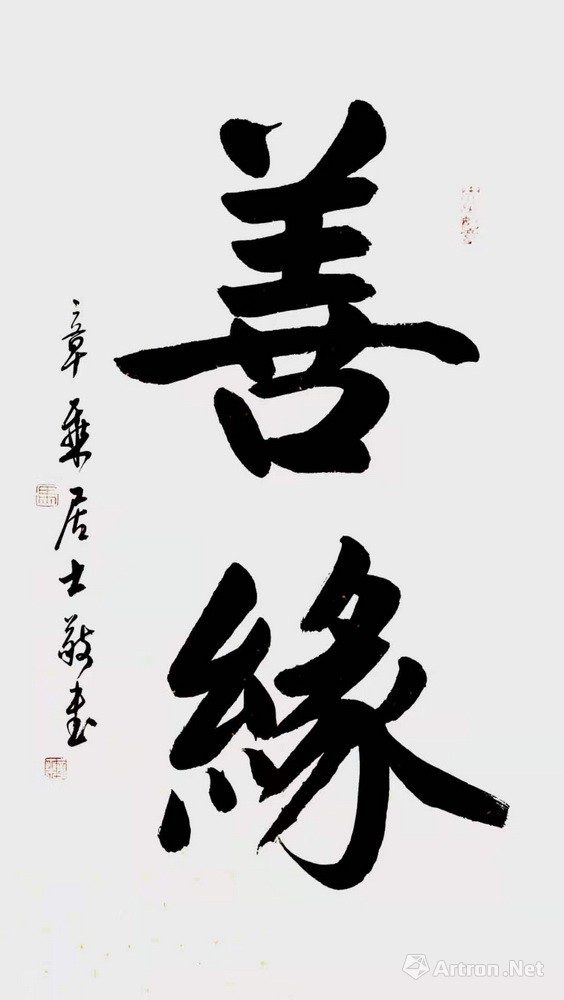 善緣
章乘居士敬書
Artron.Net